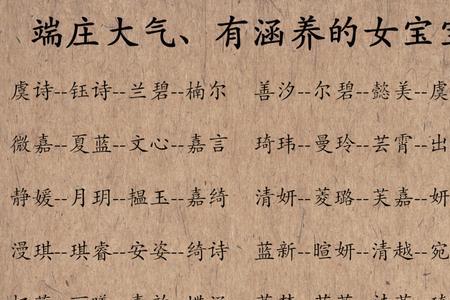 端庄大气、有涵养的女宝
虞诗--钰诗--兰碧--楠尔 善汐--尔碧--懿美--虞
微嘉--夏蓝--文心--嘉言 琦玮--曼玲--芸霄--出
静媛--月玥--韫玉--嘉绮 清妍--菱璐--芙嘉--妍
漫琪--琪睿--安姿--绮诗 蓝新--暄妍--清越--宛